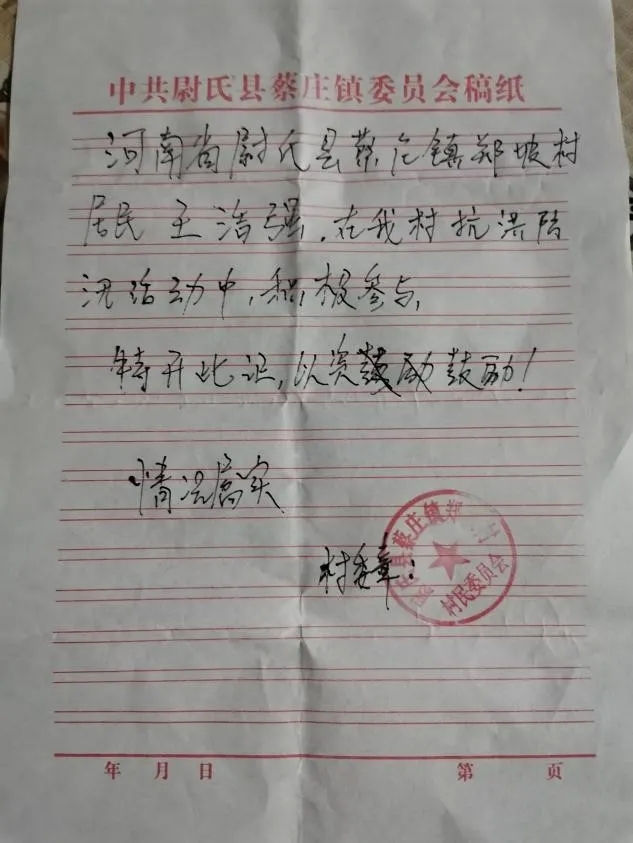 中共尉氏县蔡庄镇委员会稿纸
河南省尉氏县蔡庄镇郑坡村
居民王浩强.在我村抗洪防
汛活动中,积极参与,
特开此证,以资鼓励鼓励!
情况属实
村委章:
县蔡庄镇郑
村民委员会
年 月 日
第 页